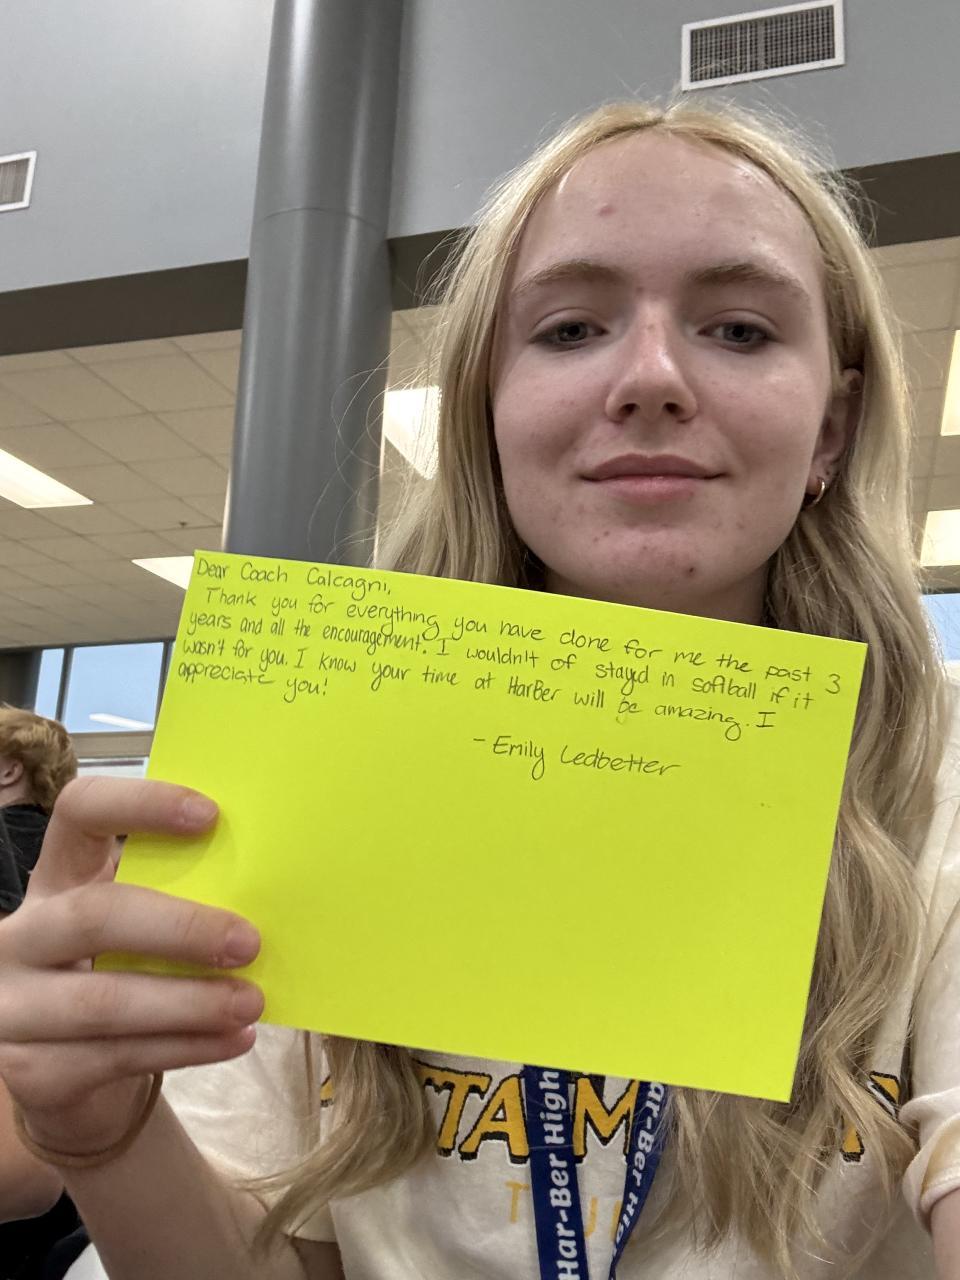 Dear Coach Calcagni,
Thank you for everything you have done for me the past 3
years and all the encouragement. I wouldn't of stayed in softball if it
wasn't for you. I know your time at HarBer will be amazing. I
appreciate you!
- Emily Ledbetter
TA M
T U
Har-Ber High
ar-Ber Hi